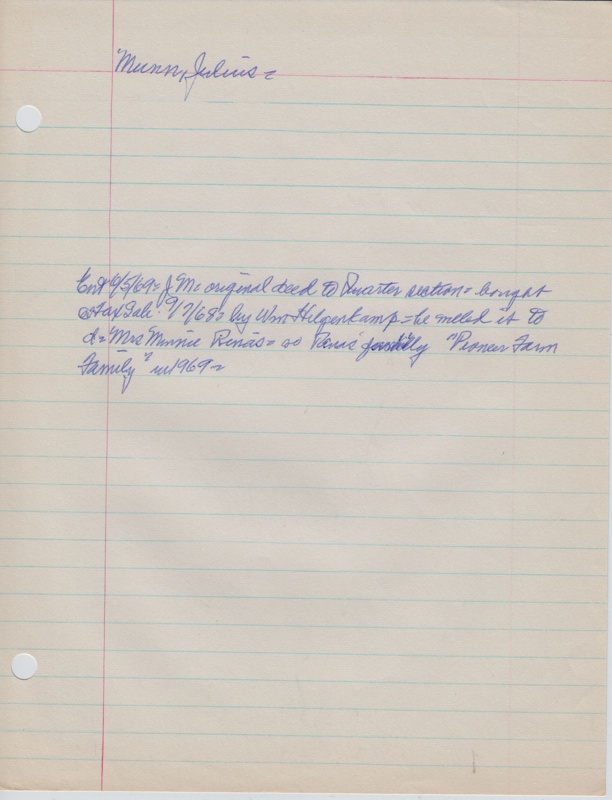 Munn, Julius =
9/5/69 = J M original deed to Quarter section = bought
Tax Sale 9/7/68 = by Wm Hilgenkamp = he willed it to
d = Mrs Minnie Rinas = so family "Pioneer Farm
Family" in 1969 =